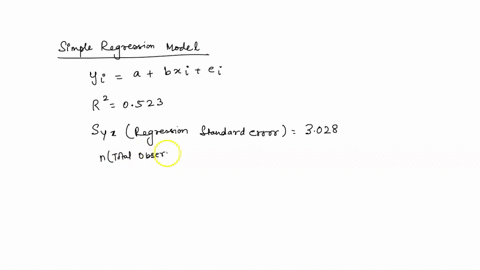 Simple Regression Model
yi = a + bxi + ei
R² = 0.523
Syx (Regression Standard error) = 3.028
n(Total Obser